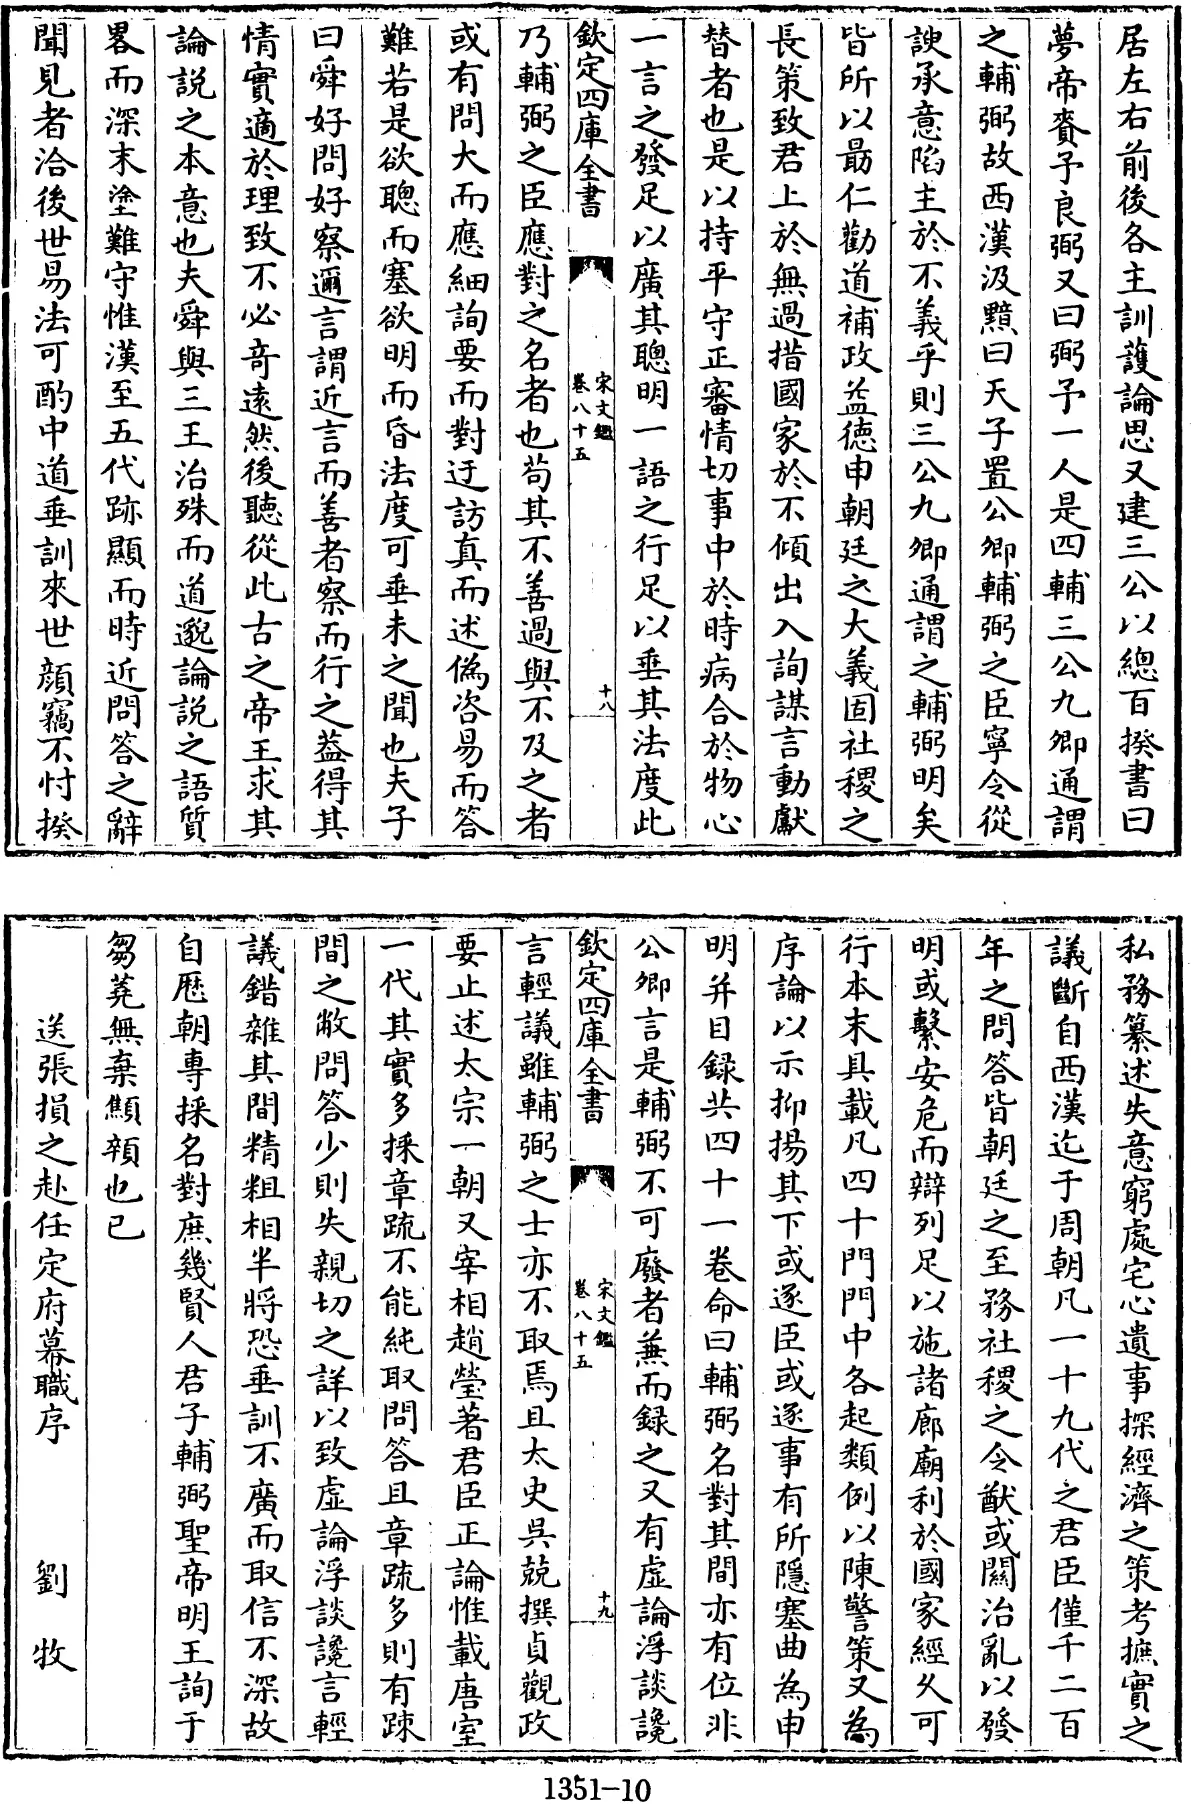 居左右前後各主訓護論思又建三公以總百揆書曰
夢帝賚予良弼又曰弼予一人是四輔三公九卿通謂
之輔弼故西漢汲黯曰天子置公卿輔弼之臣寧令從
諛承意陷主於不義乎則三公九卿通謂之輔弼明矣
皆所以勗仁勸道補政益德申朝廷之大義固社稷之
長策致君上於無過措國家於不傾出入詢謀言動獻
替者也是以持平守正審情切事中於時病合於物心
一言之發足以廣其聰明一語之行足以垂其法度此
欽定四庫全書
宋文鑑
卷八十五
十八
乃輔弼之臣應對之名者也苟其不善過與不及之者
或有問大而應細詢要而對迂訪真而述偽咨易而答
難若是欲聰而塞欲明而昏法度可垂未之聞也夫子
曰舜好問好察邇言謂近言而善者察而行之葢得其
情實適於理致不必竒遠然後聽從此古之帝王求其
論說之本意也夫舜與三王治殊而道邈論說之語質
畧而深末塗難守惟漢至五代跡顯而時近問答之辭
聞見者洽後世易法可酌中道垂訓來世顔竊不忖揆
私務纂述失意窮處宅心遺事探經濟之策考摭實之
議斷自西漢迄于周朝凡一十九代之君臣僅千二百
年之問答皆朝廷之至務社稷之令猷或關治亂以發
明或繫安危而辯列足以施諸廊廟利於國家經久可
行本末具載凡四十門門中各起類例以陳警策又為
序論以示抑揚其下或逐臣或逐事有所隱塞曲為申
明并目録共四十一卷命曰輔弼名對其間亦有位非
公卿言是輔弼不可廢者蕪而録之又有虛論浮談讒
欽定四庫全書
宋文鑑
卷八十五
十九
言輕議雖輔弼之士亦不取焉且太史吳兢撰貞觀政
要止述太宗一朝又宰相趙瑩著君臣正論惟載唐室
一代其實多採章疏不能純取問答且章疏多則有踈
間之敝問答少則失親切之詳以致虛論浮談讒言輕
議錯雜其間精粗相半將恐垂訓不廣而取信不深故
自歷朝專採名對庶幾賢人君子輔弼聖帝明王詢于
芻蕘無棄顦顇也已
送張損之赴任定府幕職序 劉牧
1351-10